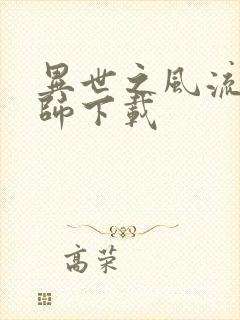 異世之風流
師下載
高荣